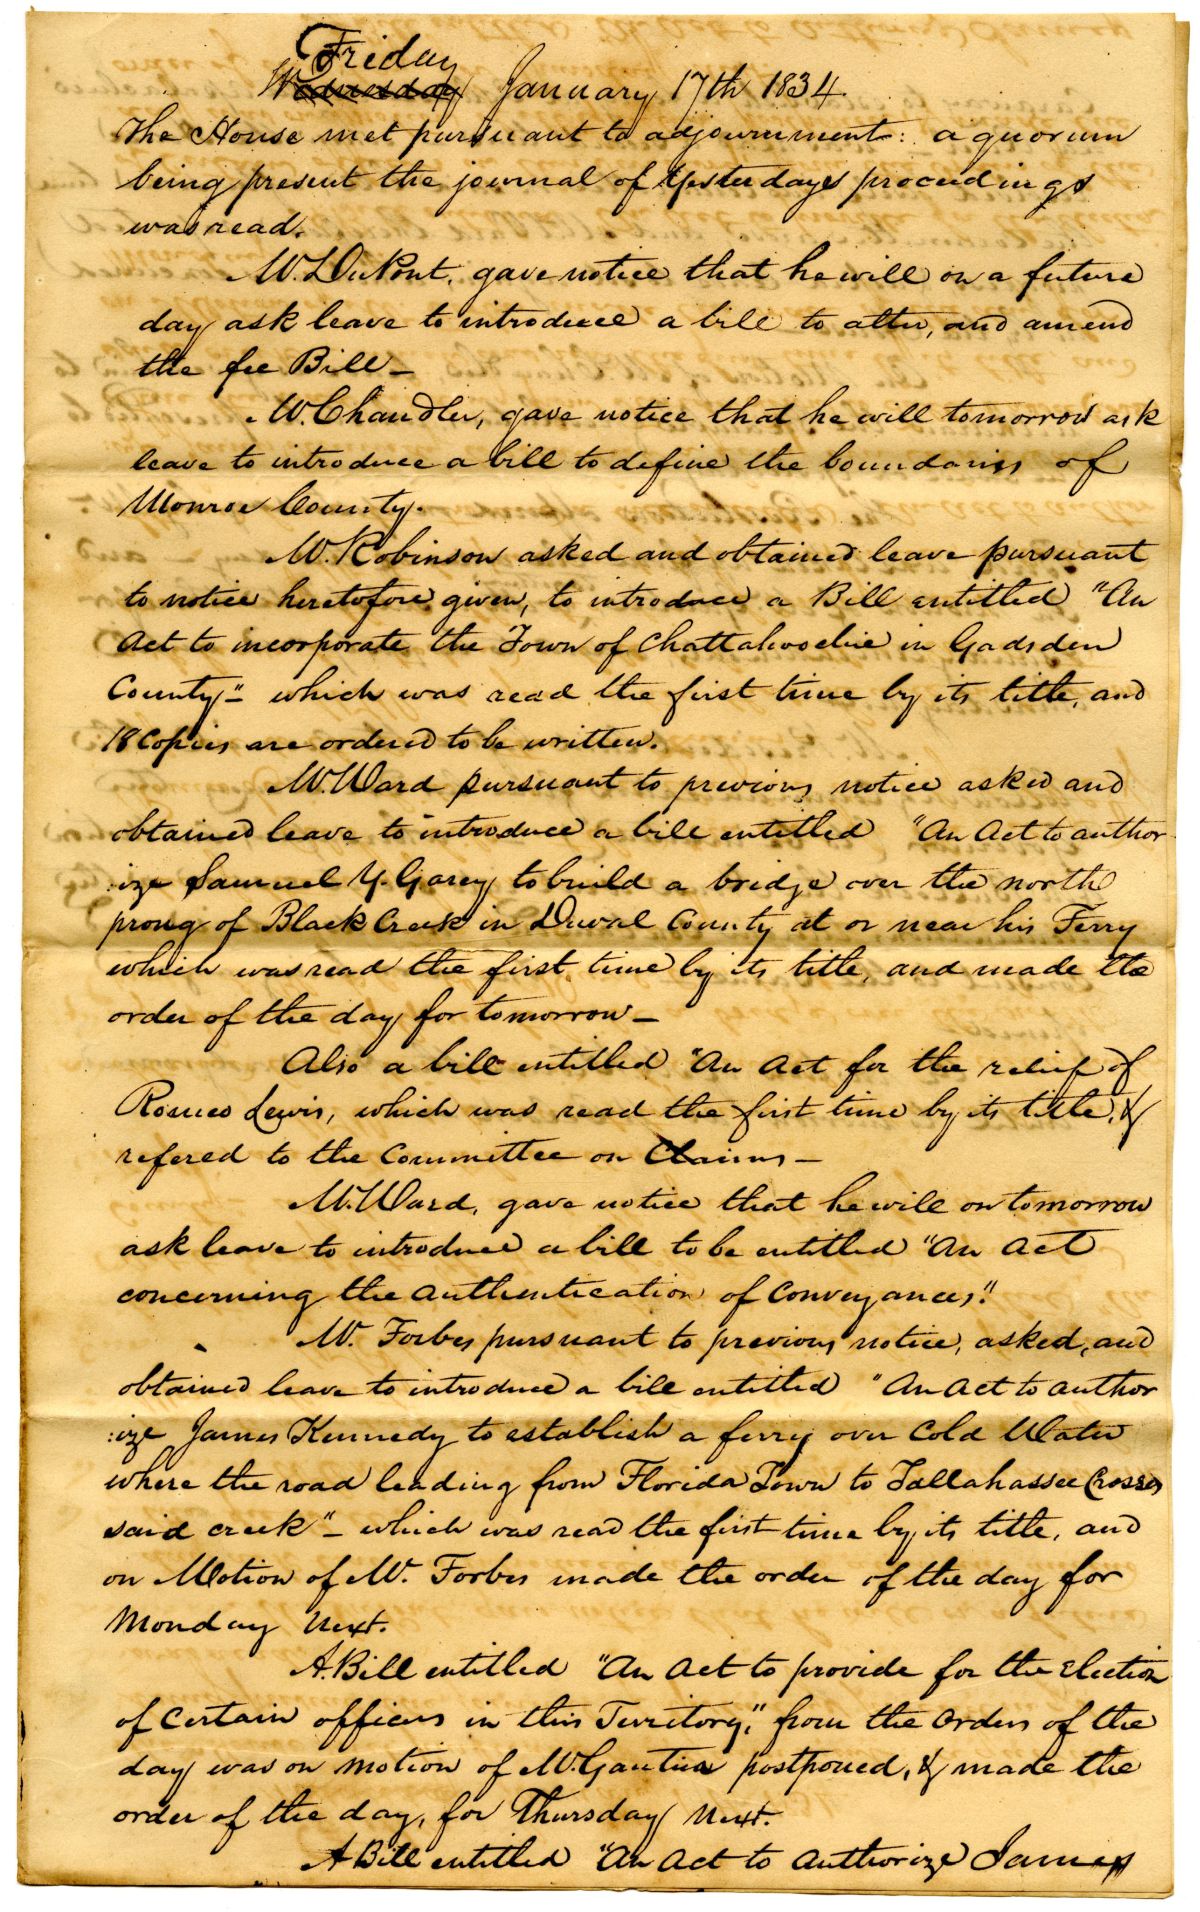 Friday
Wednesday January 17th 1834.
The House met pursuant to adjournment: a quorum
being present the journal of Yesterdays proceedings
was read.
Mr. DuPont, gave notice that he will on a future
day ask leave to introduce a bill to alter, and amend
the fee Bill —
Mr. Chandler, gave notice that he will tomorrow ask
leave to introduce a bill to define the boundaries of
Monroe County.
Mr. Robinson asked and obtained leave pursuant
to notice heretofore given, to introduce a Bill entitled "An
Act to incorporate the Town of Chattahoochie in Gadsden
County" – which was read the first time by its title, and
18 Copies are ordered to be written.
Mr. Ward pursuant to previous notice asked and
obtained leave to introduce a bill entitled "An Act to author
:ize Samuel Y. Garey to build a bridge over the north
prong of Black Creek in Duval County at or near his Ferry
which was read the first time by its title, and made the
order of the day for tomorrow —
Also a bill entitled "An Act for the relief of
Romeo Lewis, which was read the first time by its title, &
refered to the Committee on Claims —
Mr. Ward, gave notice that he will on tomorrow
ask leave to introduce a bill to be entitled "An Act
concerning the Authentication of Conveyances."
Mr. Forbes pursuant to previous notice, asked, and
obtained leave to introduce a bill entitled "An Act to author
:ize James Kennedy to establish a ferry over Cold Water
where the road leading from Florida Town to Tallahassee Crosses
said creek" – which was read the first time by its title, and
on Motion of Mr. Forbes made the order of the day for
Monday Next.
A Bill entitled "An Act to provide for the Election
of Certain officers in this Territory," from the Orders of the
day was on motion of Mr. Gautier postponed, & made the
order of the day, for Thursday Next.
A Bill entitled "An Act to Authorize James